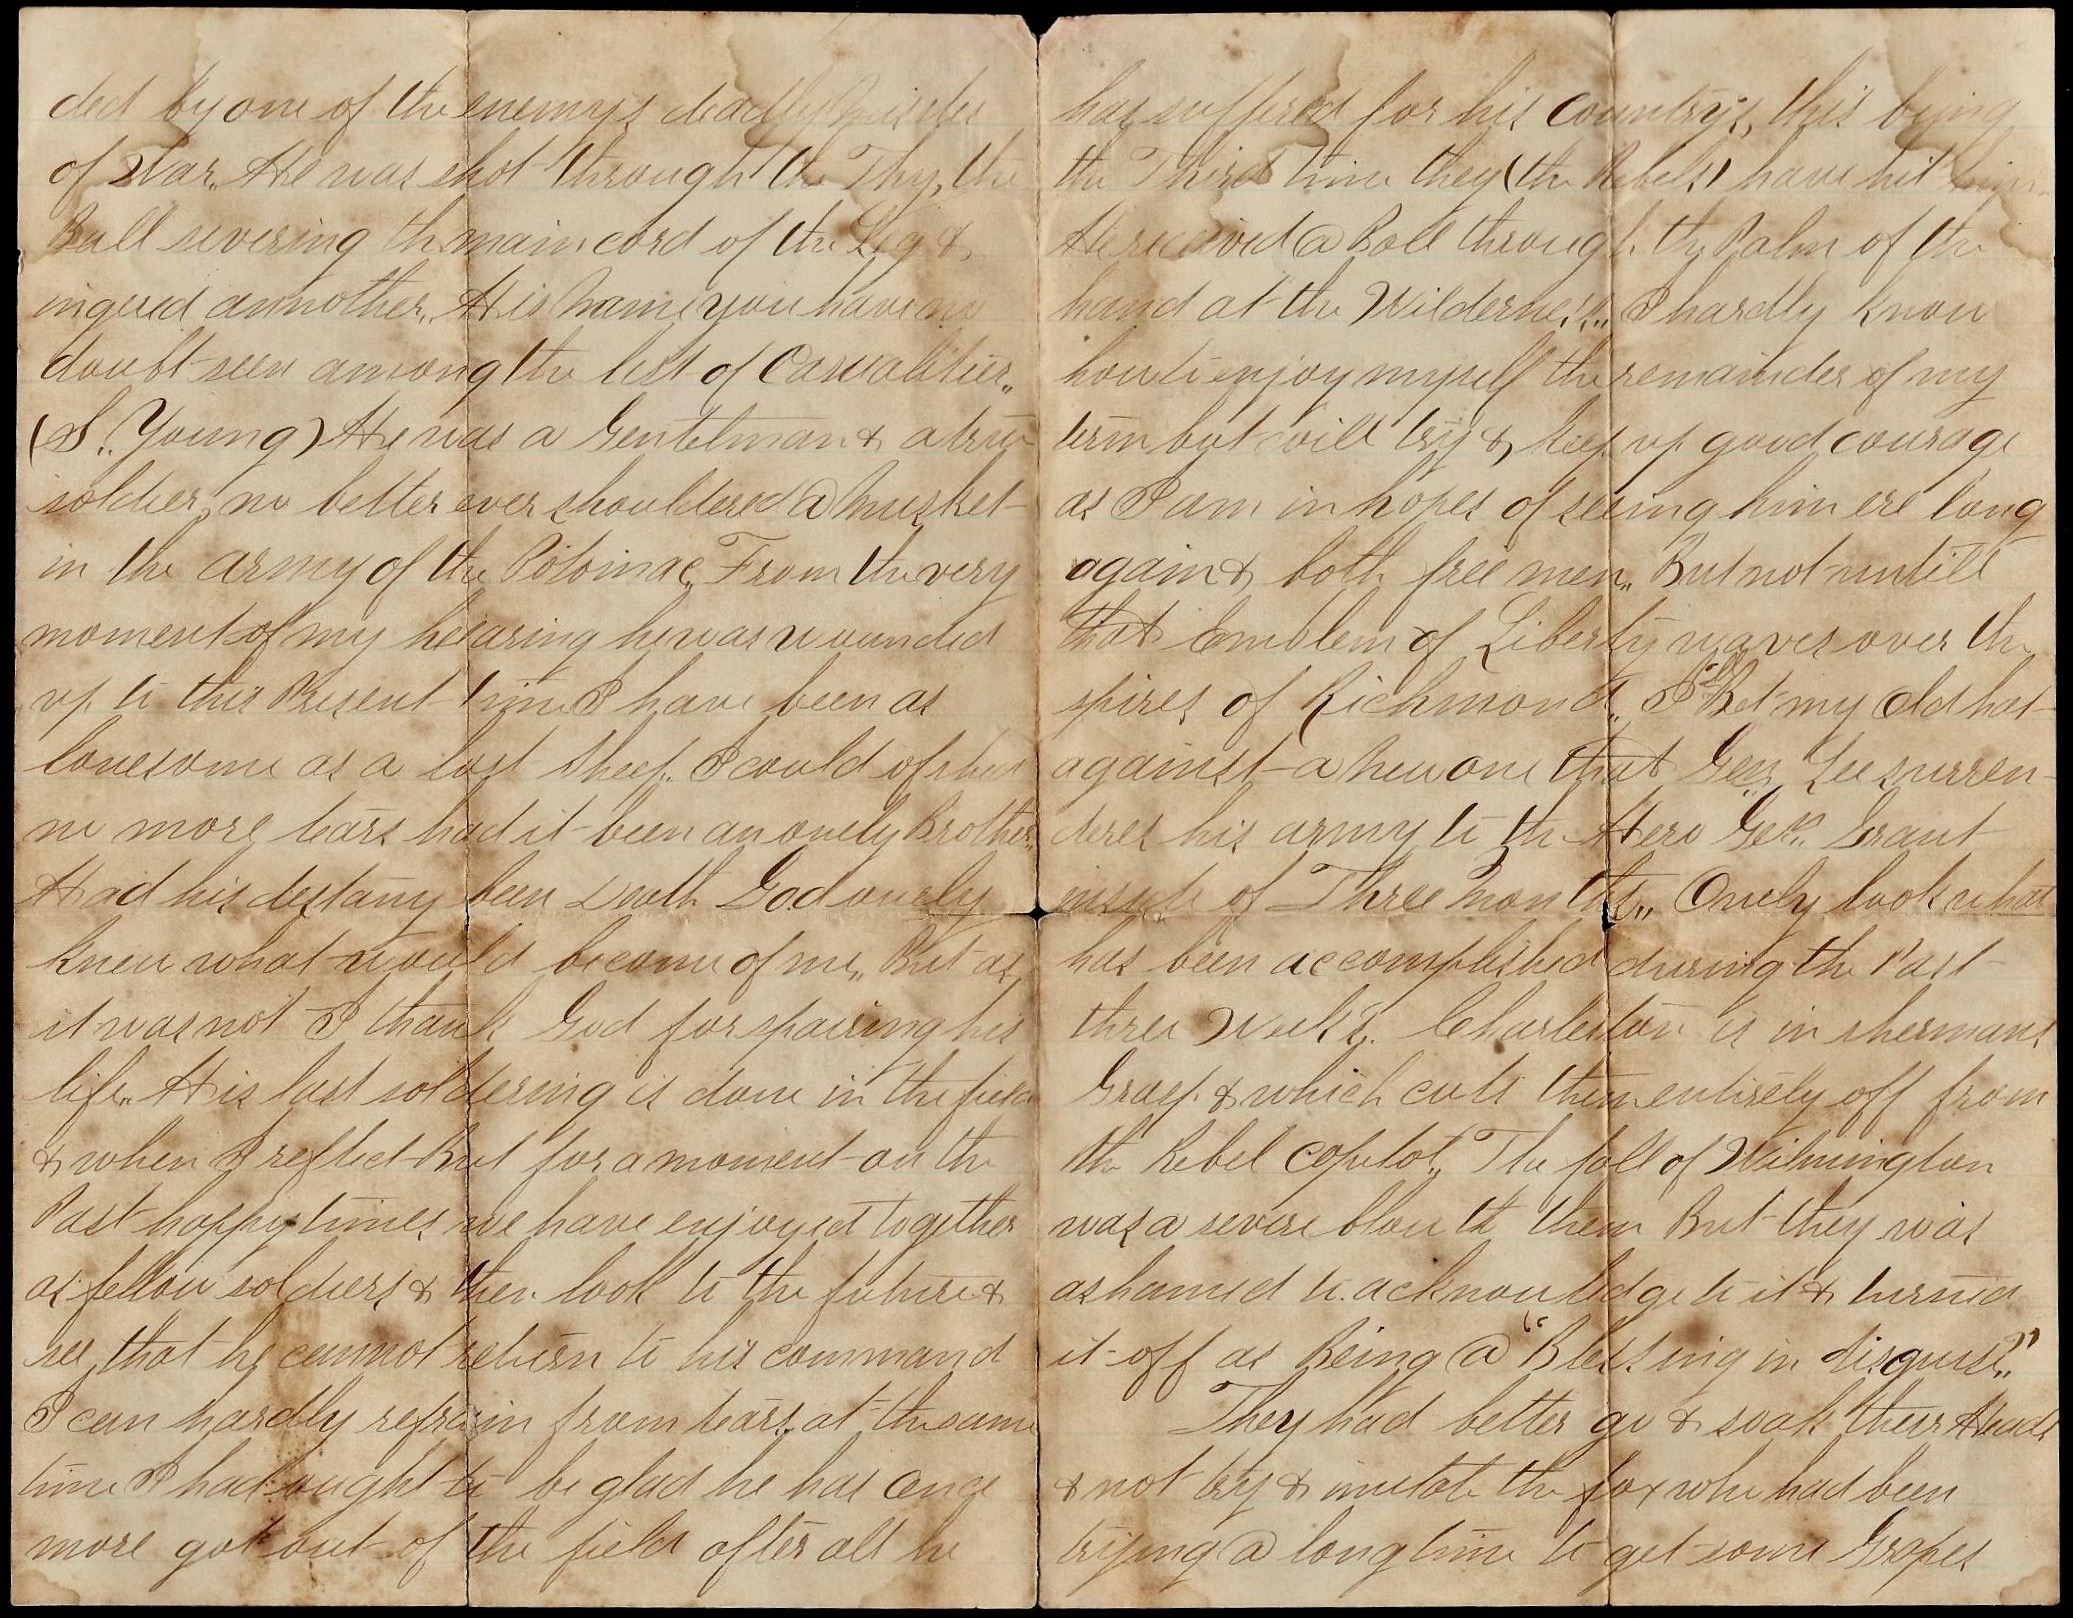 ded by one of the enemys deadly Missles
of War. He was shot through the Thy, the
Ball severing the main cord of the Leg &
ingured annother.. His Name you have no
doubt seen among the list of Casualities..
(S.. Young) He was a Gentelman & a true
soldier, no better ever shouldered a Musket
in the army of the Potomac, From the very
moment of my hearing he was wounded
up to this Present time I have been as
lonesome as a lost Sheep. I could of shed
no more tears had it been an onely Brother..
Had his destany been Death God onely
knew what would become of me,, But as
it was not I thank God for spairing his
life.. His last soldering is done in the field
& when I reflect But for a moment on the
Past happy times we have enjoyed together
as fellow soldiers & then look to the future &
see, that he cannot return to his command
I can hardly refrain from tears. at the same
time I had ought to be glad he has once
more got out of the field after all he
has suffered for his Country's, this being
the Third time they (the Rebels) have hit him.
He received a Ball through the Palm of the
hand at the Wilderness.. I hardly know
how to enjoy myself the remainder of my
term but will try & keep up good courage
as I am in hopes of seeing him ere long
again & both free men.. But not untill
that Emblem of Liberty waves over the
spires of Richmond.. I'll Bet my Old hat
against a New one that Gen. Lee surren-
deres his army to the Hero Gen. Grant
inside of Three Months,, Onely look what
has been accomplished during the Past
three Weeks.. Charleston is in shermans
Grasp & which cuts them entirely off from
the Rebel Capitol.. The fall of Wilmington
was a severe blow to them But they was
ashamed to acknowledge to it & turned
it off as Being a "Blessing in disguise.."
They had better go & soak their Heads
& not try & imitate the fox who had been
trying a long time to get some Grapes